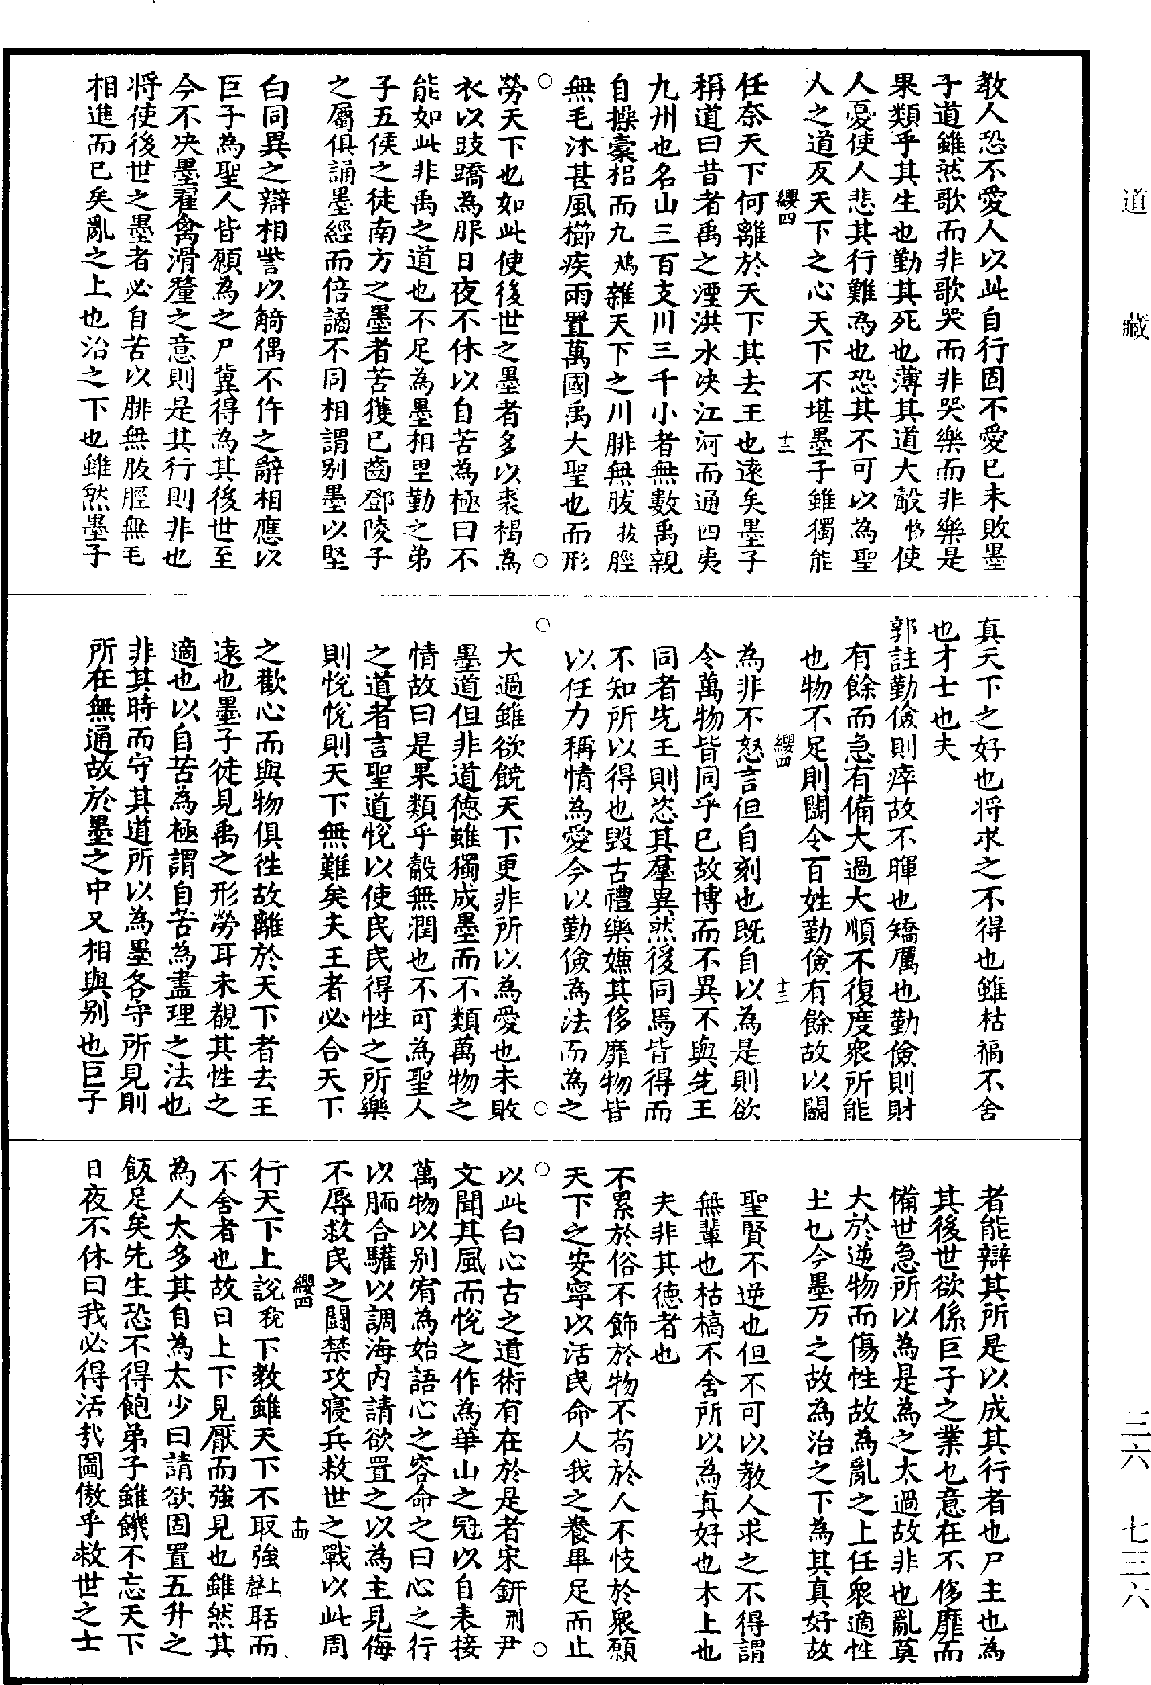 道藏
三六 七三六
教人恐不愛人以此自行固不愛已未敗墨
子道雖然歌而非歌哭而非哭樂而非樂是
果類乎其生也勤其死也薄其道大觳恪使
人憂使人悲其行難為也恐其不可以為聖
人之道反天下之心天下不堪墨子雖獨能
纓四 十二
任奈天下何離於天下其去王也遠矣墨子
稱道曰昔者禹之湮洪水决江河而通四夷
九州也名山三百支川三千小者無數禹親
自操橐耜而九鳩雜天下之川腓無胈拔脛
無毛沐甚風櫛疾雨置萬國禹大聖也而形
勞天下也如此使後世之墨者多以裘褐為
衣以跂蹻為服日夜不休以自苦為極曰不
能如此非禹之道也不足為墨相里勤之弟
子五侯之徒南方之墨者苦獲已齒鄧陵子
之屬俱誦墨經而倍譎不同相謂别墨以堅
白同異之辯相訾以觭偶不仵之辭相應以
巨子為聖人皆願為之尸兾得為其後世至
今不决墨翟禽滑釐之意則是其行則非也
將使後世之墨者必自苦以腓無胈脛無毛
相進而已矣亂之上也治之下也雖然墨子
真天下之好也將求之不得也雖枯槁不舍
也才士也夫
郭註勤儉則瘁故不暉也矯厲也勤儉則財
有餘而急有備大過大順不復度衆所能
也物不足則鬭令百姓勤儉有餘故以鬭
纓四 十三
為非不怒言但自刻也既自以為是則欲
令萬物皆同乎已故博而不異不與先王
同者先王則恣其羣異然後同焉皆得而
不知所以得也毀古禮樂嫌其侈靡物皆
以任力稱情為愛今以勤儉為法而為之
大過雖欲饒天下更非所以為愛也未敗
墨道但非道德雖獨成墨而不類萬物之
情故曰是果類乎觳無潤也不可為聖人
之道者言聖道悅以使民民得性之所樂
則悅悅則天下無難矣夫王者必合天下
之歡心而與物俱徃故離於天下者去王
遠也墨子徒見禹之形勞耳未覩其性之
適也以自苦為極謂自苦為盡理之法也
非其時而守其道所以為墨各守所見則
所在無通故於墨之中又相與别也巨子
者能辯其所是以成其行者也尸主也為
其後世欲係巨子之業也意在不侈靡而
備世急所以為是為之太過故非也亂莫
大於逆物而傷性故為亂之上任衆適性
上也今墨万之故為治之下為其真好故
聖賢不逆也但不可以教人求之不得謂
無輩也枯槁不舍所以為真好也木上也
夫非其德者也
不累於俗不飾於物不苟於人不忮於衆願
天下之安寧以活民命人我之養畢足而止
以此白心古之道術有在於是者宋鈃刑尹
文聞其風而悅之作為華山之冠以自表接
萬物以别宥為始語心之容命之曰心之行
以胹合驩以調海内請欲置之以為主見侮
不辱救民之鬬禁攻寢兵救世之戰以此周
纓四 十四
行天下上說稅下教雖天下不取強上聲聒而
不舍者也故曰上下見厭而強見也雖然其
為人太多其自為太少曰請欲固置五升之
飯足矣先生恐不得飽弟子雖饑不忘天下
日夜不休曰我必得活㢤圖傲乎救世之士